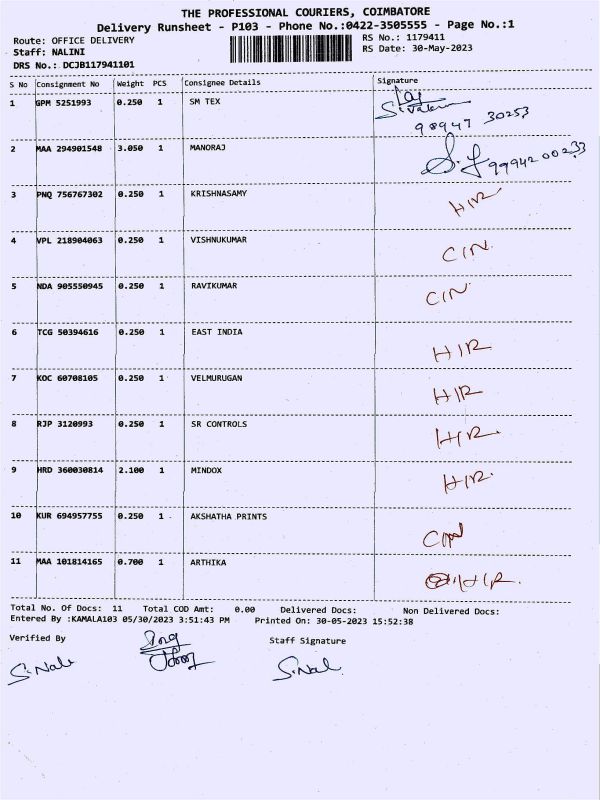 THE PROFESSIONAL COURIERS, COIMBATORE
Delivery Runsheet - P103 - Phone No.:0422-3505555 - Page No.:1
Route: OFFICE DELIVERY RS No.: 1179411
Staff: NALINI RS Date: 30-May-2023
DRS No.: DCJB117941101
S No Consignment No Weight PCS Consignee Details Signature
1 GPM 5251993 0.250 1 SM TEX
98947 30253
2 MAA 294901548 3.050 1 MANORAJ 9994200233
3 PNQ 756767302 0.250 1 KRISHNASAMY HIR
4 VPL 218904063 0.250 1 VISHNUKUMAR CIN.
5 NDA 905550945 0.250 1 RAVIKUMAR CIN
6 TCG 50394616 0.250 1 EAST INDIA HIR
7 KOC 60708105 0.250 1 VELMURUGAN HIR
8 RJP 3120993 0.250 1 SR CONTROLS HIR.
9 HRD 360030814 2.100 1 MINDOX HIR.
10 KUR 694957755 0.250 1 AKSHATHA PRINTS
11 MAA 101814165 0.700 1 ARTHIKA HIR.
Total No. Of Docs: 11 Total COD Amt: 0.00 Delivered Docs: Non Delivered Docs:
Entered By :KAMALA103 05/30/2023 3:51:43 PM Printed On: 30-05-2023 15:52:38
Verified By Staff Signature
S.Nal